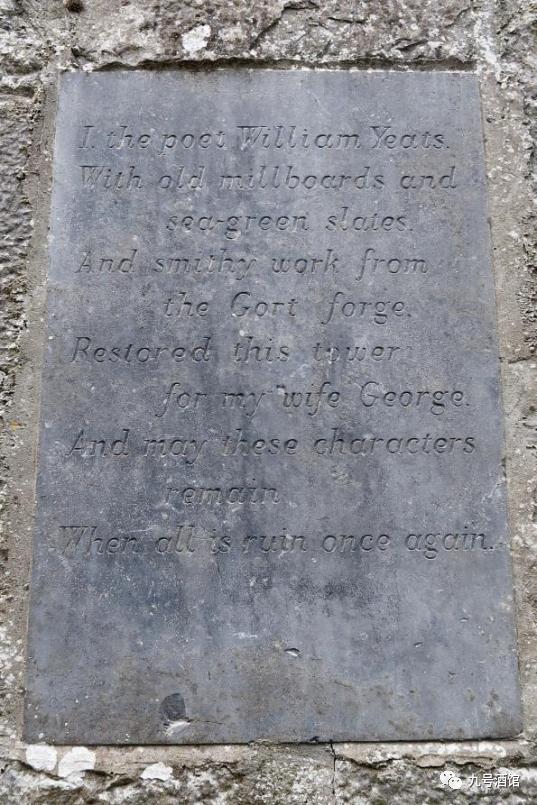 I, the poet William Yeats,
With old millboards and
sea-green slates,
And smithy work from
the Gort forge,
Restored this tower
for my wife George.
And may these characters
remain
When all is ruin once again.
九号酒馆